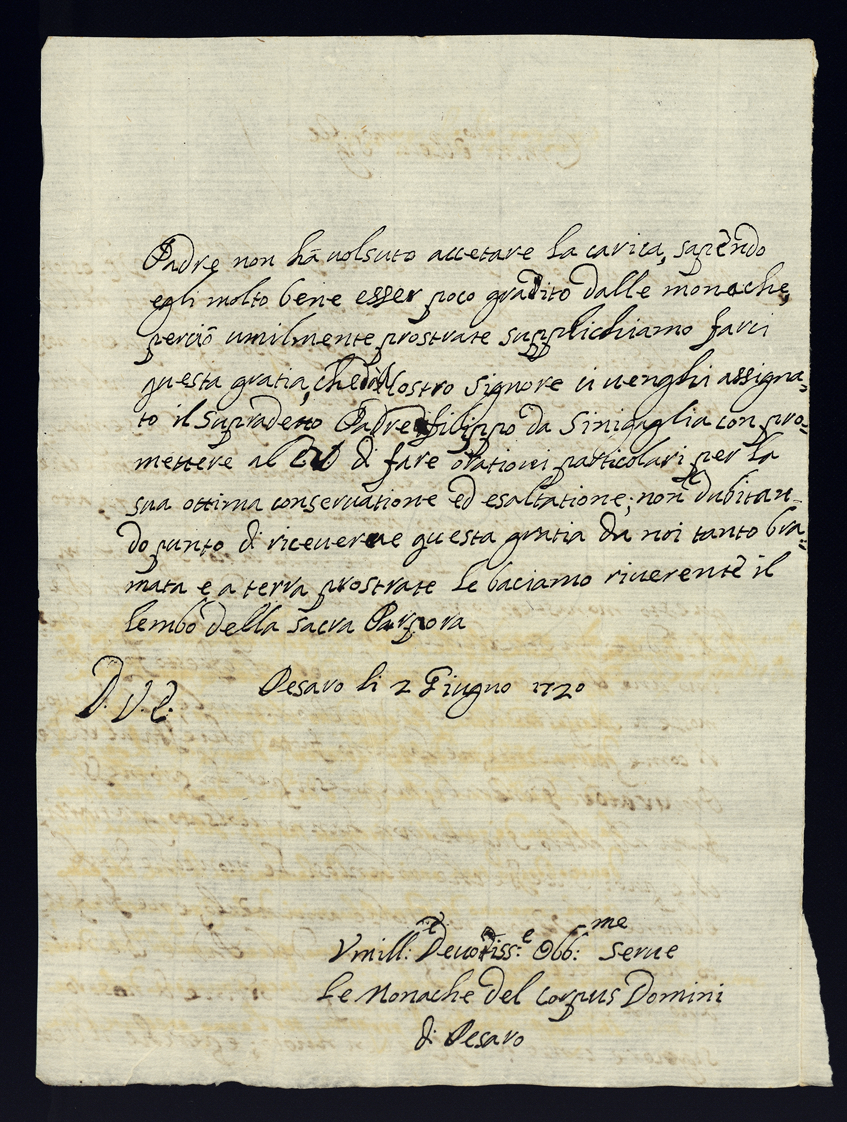 Padre non hà uolsuto accetare la carica, sapẽndo
egli molto bene esser poco gradito dalle monache,
perciò umilmente prostrate supplichiamo farci
questa gratia, che da Nostro Signore ci uenghi assigna=
to il Supradetto Padre filippo da Sinigaglia con pro=
mettere al di fare orationi particolari per la
sua ottima conseruatione ed esaltatione; non dubitan=
do punto di riceuere questa gratia da noi tanto bra=
mata e a terra prostrate le baciamo riuerentẽ il
lembo della sacra Porpora
D. V. E. Pesaro li 2 Giugno 1720
Vmill:e Deuotiss:e Obb:me Serue
Le Monache del Corpus Domini
di Pesaro